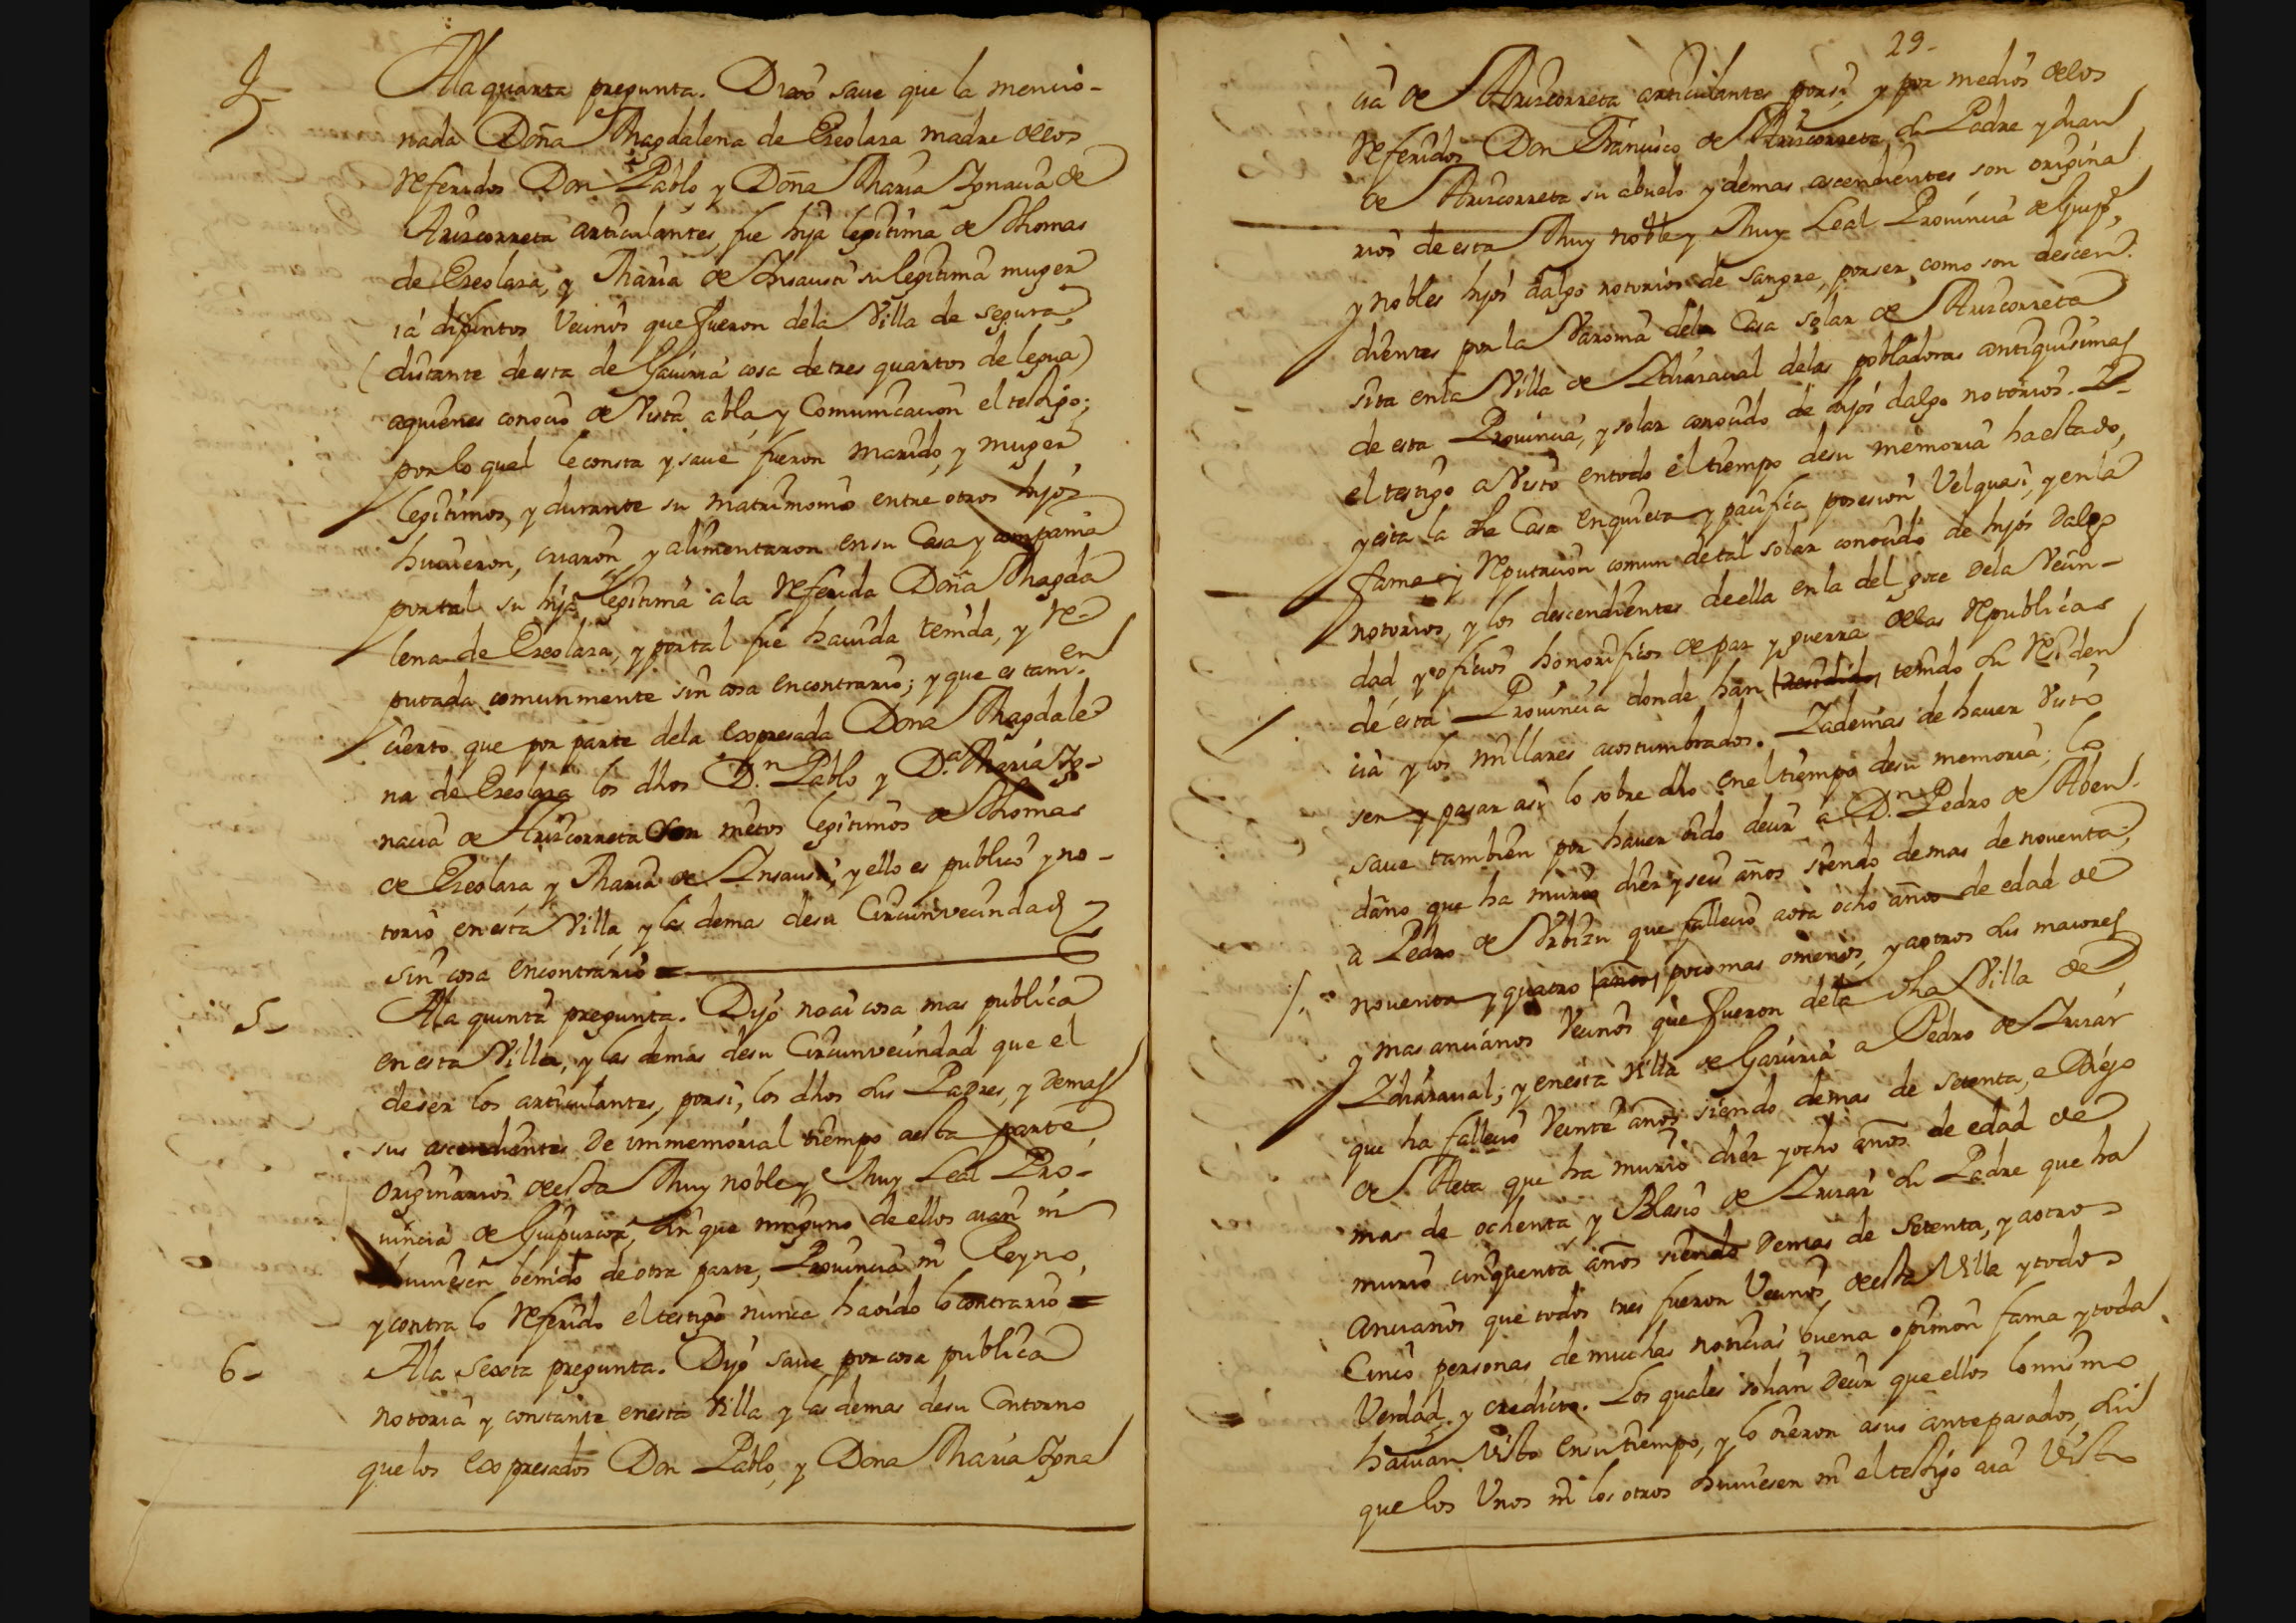 4
A la quarta pregunta. Dixo saue que la mencio-
nada Doña Magdalena de Ereolara madre delos
referidos Don Pablo y Doña Maria Ignacia de
Arizcorreta articulantes, fue hija legitima de Thomas
de Ereolara, y Maria de Insausti su legitima muger
iá difuntos Vecinos que fueron dela Villa de Segura
(distante de esta de Gauiria cosa de tres quartos de legua)
aquienes conocio de Vista abla, y Comunicacion el testigo;
por lo qual le consta y saue fueron marido, y muger
legitimos, y durante su matrimonio entre otros hijos
huuieron, criaron y alimentaron en su Casa y compañia
por tal su hija legitima ala referida Doña Magda
lena de Ereolara, y por tal fue hauida tenida, y re-
putada comunmente sin cosa en contrario; y que es tam-en
cierto que por parte dela expresada Doña Magdale
na de Ereolara los dhos D.n Pablo y D.a Maria Ig-
nacia de Arizcorreta son nietos legitimos de Thomas
de Ereolara y Maria de Insausti, y ello es publico y no-
torio en esta Villa y las demas desu Circunvecindad
sin cosa en contrario =
5-
A la quinta pregunta. Dijo no ai cosa mas publica
en esta Villa, y las demas desu Circunvecindad que el
deser los articulantes, porsi, los dhos sus Padres, y demas
sus ascendientes de immemorial tiempo aesta parte
originarios de esta Muy noble y Muy Leal Pro-
uincia de Guipuzcoa, sin que ninguno de ellos aian ni
huuiesen benido de otra parte, Prouincia ni Reyno,
y contra lo referido el testigo nunca ha oido lo contrario =
6-
A la sexta pregunta. Dijo saue por cosa publica
notoria y constante en esta Villa y las demas desu Contorno
que los expresados Don Pablo, y Dona Maria Igna
29-
cia de Arizcorreta articulantes porsi, y por medios delos
referidos Don Francisco de Arizcorreta su Padre y Juan
de Arizcorreta su abuelo y demas ascendientes son origina
rios de esta Muy noble y Muy Leal Prouincia de Guip.a
y nobles hijos dalgo notorios de sangre, por ser como son descen-
dientes por la Varonia dela Casa solar de Arizcorreta
sita enla Villa de Ichasaual delas pobladoras antiquisimas
de esta Prouincia, y solar conocido de hijos dalgo notorios. Y
el testigo a Visto entodo el tiempo desu memoria ha estado,
y esta la dha Casa en quieta y pacifica posesion Vel quasi, y enla
fama y reputacion comun de tal solar conocido de hijos dalgo
notorios, y los descendientes de ella en la del goce dela Vecin-
dad y oficios honorificos de paz y guerra delas republicas
de esta Prouincia donde han tenido su residen
cia y los millares acostumbrados. Y ademas de hauer Visto
ser y pasar asi lo sobre dho en el tiempo desu memoria; lo
saue tambien por hauer oido decir á D.n Pedro de Aben-
daño que ha murio diez y seis años siendo demas de nouenta;
a Pedro de Urbizu que fallecio aora ocho años de edad de
nouenta y quatro poco mas o menos, y a otros sus maiores
y mas ancianos Vecinos que fueron dela dha Villa de
Ichasaual; y enesta Villa de Gauiria a Pedro de
que ha fallecio Veinte años siendo demas de Setenta, e Diego
de Aeta que ha murio diez y ocho años de edad de
mas de ochenta, y Blasio de su Padre que ha
murio cinquenta años siendo demas de Setenta, y a otro
ancianos que todos tres fueron Vecinos de esta Villa y todos
Cinco personas de muchas noticias buena opinion fama y toda
Verdad y credicto. Los quales solian decir que ellos lo mismo
hauian Visto en su tiempo, y lo oieron asus antepasados, sin
que los Unos ni los otros huuiesen ni el testigo aia Visto